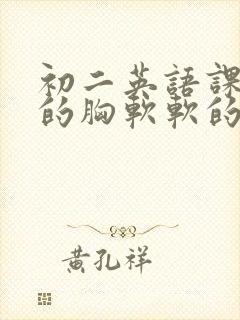 初二英語課
的胸軟軟的
黄孔祥